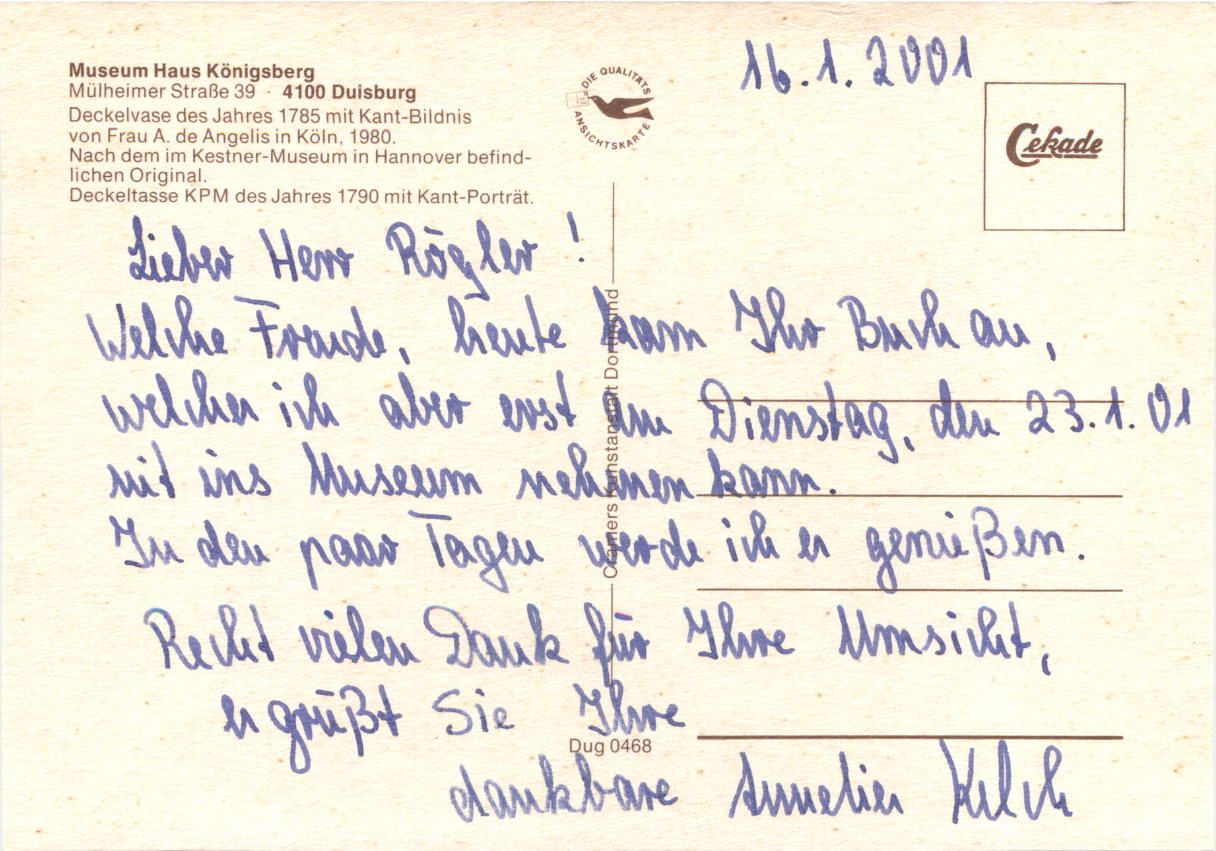 Museum Haus Königsberg
Mülheimer Straße 39 · 4100 Duisburg
Deckelvase des Jahres 1785 mit Kant-Bildnis
von Frau A. de Angelis in Köln, 1980.
Nach dem im Kestner-Museum in Hannover befind-
lichen Original.
Deckeltasse KPM des Jahres 1790 mit Kant-Porträt.
DIE QUALITÄTS
ANSICHTSKARTE
16.1.2001
Cekade
Lieber Herr Rögler!
Welche Freude, heute kam Ihr Buch an,
welches ich aber erst am Dienstag, den 23.1.01
mit ins Museum nehmen kann.
In den paar Tagen werde ich es genießen.
Recht vielen Dank für Ihre Umsicht,
es grüßt Sie Ihre
dankbare Annelies Kelch
Cramers Kunstanstalt Dortmund
Dug 0468